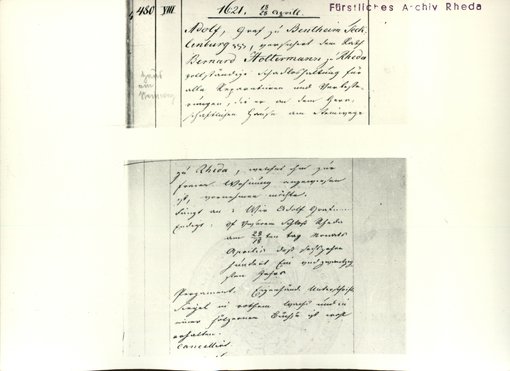 Fürstliches Archiv Rheda
480 VIII. 1621. 18/28 Aprill.
Adolf, Graf zu Bentheim Teck-
lenburg pp, versichert dem Rath
Bernard Holtermann zu Rheda
vollständige Schadloshaltung für
alle Reparaturen und Verbesse-
rungen, die er an dem Herr-
schaftlichen Hause am Steinwege
zu Rheda, welches ihm zur
freien Wohnung angewiesen
ist, vornehmen möchte.
Fängt an: Wir Adolf Graf....
Endigt: uf Unserm Schloß Rheda
am 28/18 ten tag Monats
Aprilis des sechszehn
hundert Ein und zwantzig
sten Jahrs
Pergament. Eigenhänd. Unterschrift.
Siegel in rothem Wachs und in
einer hölzernen Büchse ist wohl
erhalten.
Cancellirt